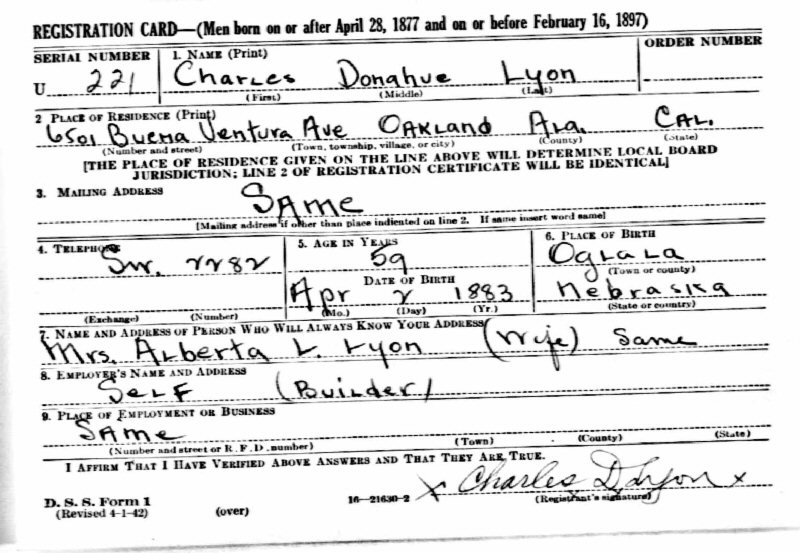 REGISTRATION CARD—(Men born on or after April 28, 1877 and on or before February 16, 1897)
SERIAL NUMBER 1. NAME (Print) ORDER NUMBER
U 221 Charles Donahue Lyon
(First) (Middle) (Last)
2 PLACE OF RESIDENCE (Print)
6501 Buena Ventura Ave OAKLAND Ala. CAL.
(Number and street) (Town, township, village, or city) (County) (State)
[THE PLACE OF RESIDENCE GIVEN ON THE LINE ABOVE WILL DETERMINE LOCAL BOARD
JURISDICTION; LINE 2 OF REGISTRATION CERTIFICATE WILL BE IDENTICAL]
3. MAILING ADDRESS
SAme
[Mailing address if other than place indicated on line 2. If same insert word same]
4. TELEPHONE 5. AGE IN YEARS 6. PLACE OF BIRTH
Sw. 2282 59 OgLaLa
DATE OF BIRTH (Town or county)
Apr 2 1883 Nebraska
(Exchange) (Number) (Mo.) (Day) (Yr.) (State or country)
7. NAME AND ADDRESS OF PERSON WHO WILL ALWAYS KNOW YOUR ADDRESS
Mrs. Alberta L. Lyon (Wife) Same
8. EMPLOYER'S NAME AND ADDRESS
SeLF (BuiLder)
9. PLACE OF EMPLOYMENT OR BUSINESS
SAme
(Number and street or R. F. D. number) (Town) (County) (State)
I AFFIRM THAT I HAVE VERIFIED ABOVE ANSWERS AND THAT THEY ARE TRUE.
x Charles D Lyon x
D. S. S. Form 1 16—21630-2 (Registrant's signature)
(Revised 4-1-42) (over)